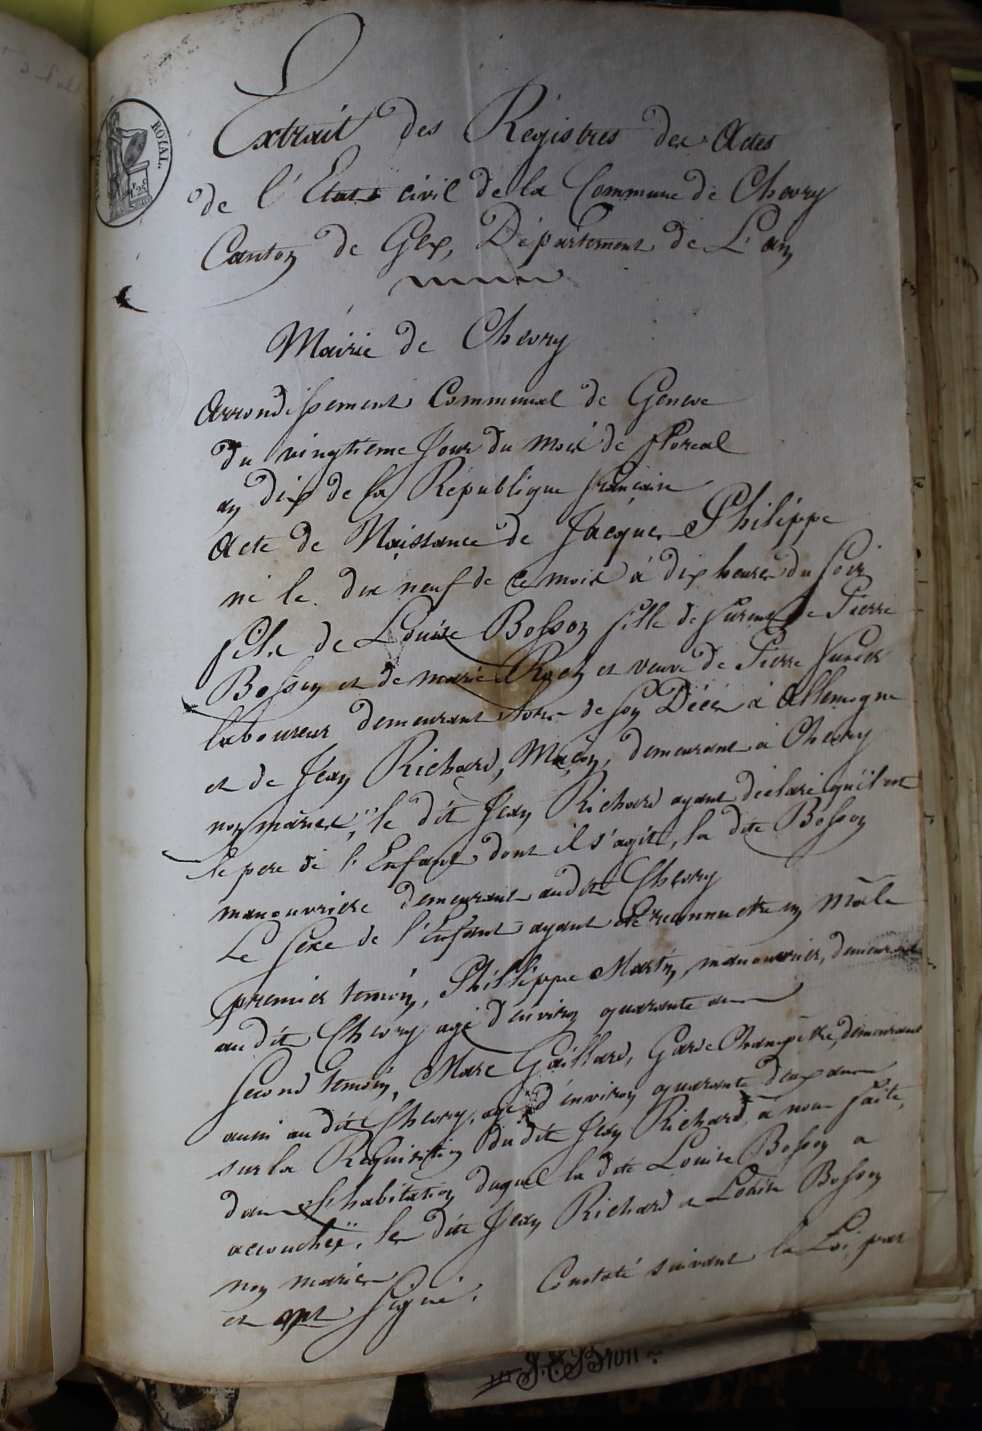 ROYAL.
Extrait des Régistres des Actes
de l'Etat civil de la Commune de Chevry
Canton de Gex, Département de L'ain
Mairie de Chevry
Arrondissement Communal de Geneve
du vingtieme Jour du mois de floreal
an dix de la République francaise
Acte de Naissance de Jacques Philippe
né le dix neuf de ce mois à dix heures du soir
fils de Louise Bosson fille de de Pierre
Bosson et de marie Roch et veuve de Pierre
laboureur demeurant lors de son Décès à Allemogne
et de Jean Richard, Maçon, demeurant à Chevry
non mariés, le dit Jean Richard ayant déclaré qu'il est
le pere de l'Enfant dont il s'agit, la dite Bosson
manouvriere demeurant audit Chevry
Le sexe de l'Enfant ayant été reconnu etre un Mâle
premier temoin, Philippe Martin, manouvrier, demeurant
au dit Chevry agé d'environ quarante ans
second temoin, Marc Gaillard, Garde Champêtre, demeurant
aussi au dit Chevry, agé d'environ quarante deux ans
sur la Requisition du dit Jean Richard à nous faite,
dans l'habitation duquel la dite Louise Bosson a
accouchée, le dit Jean Richard a Louise Bosson
non mariés
et ont signé. Constaté suivant la Loi, par